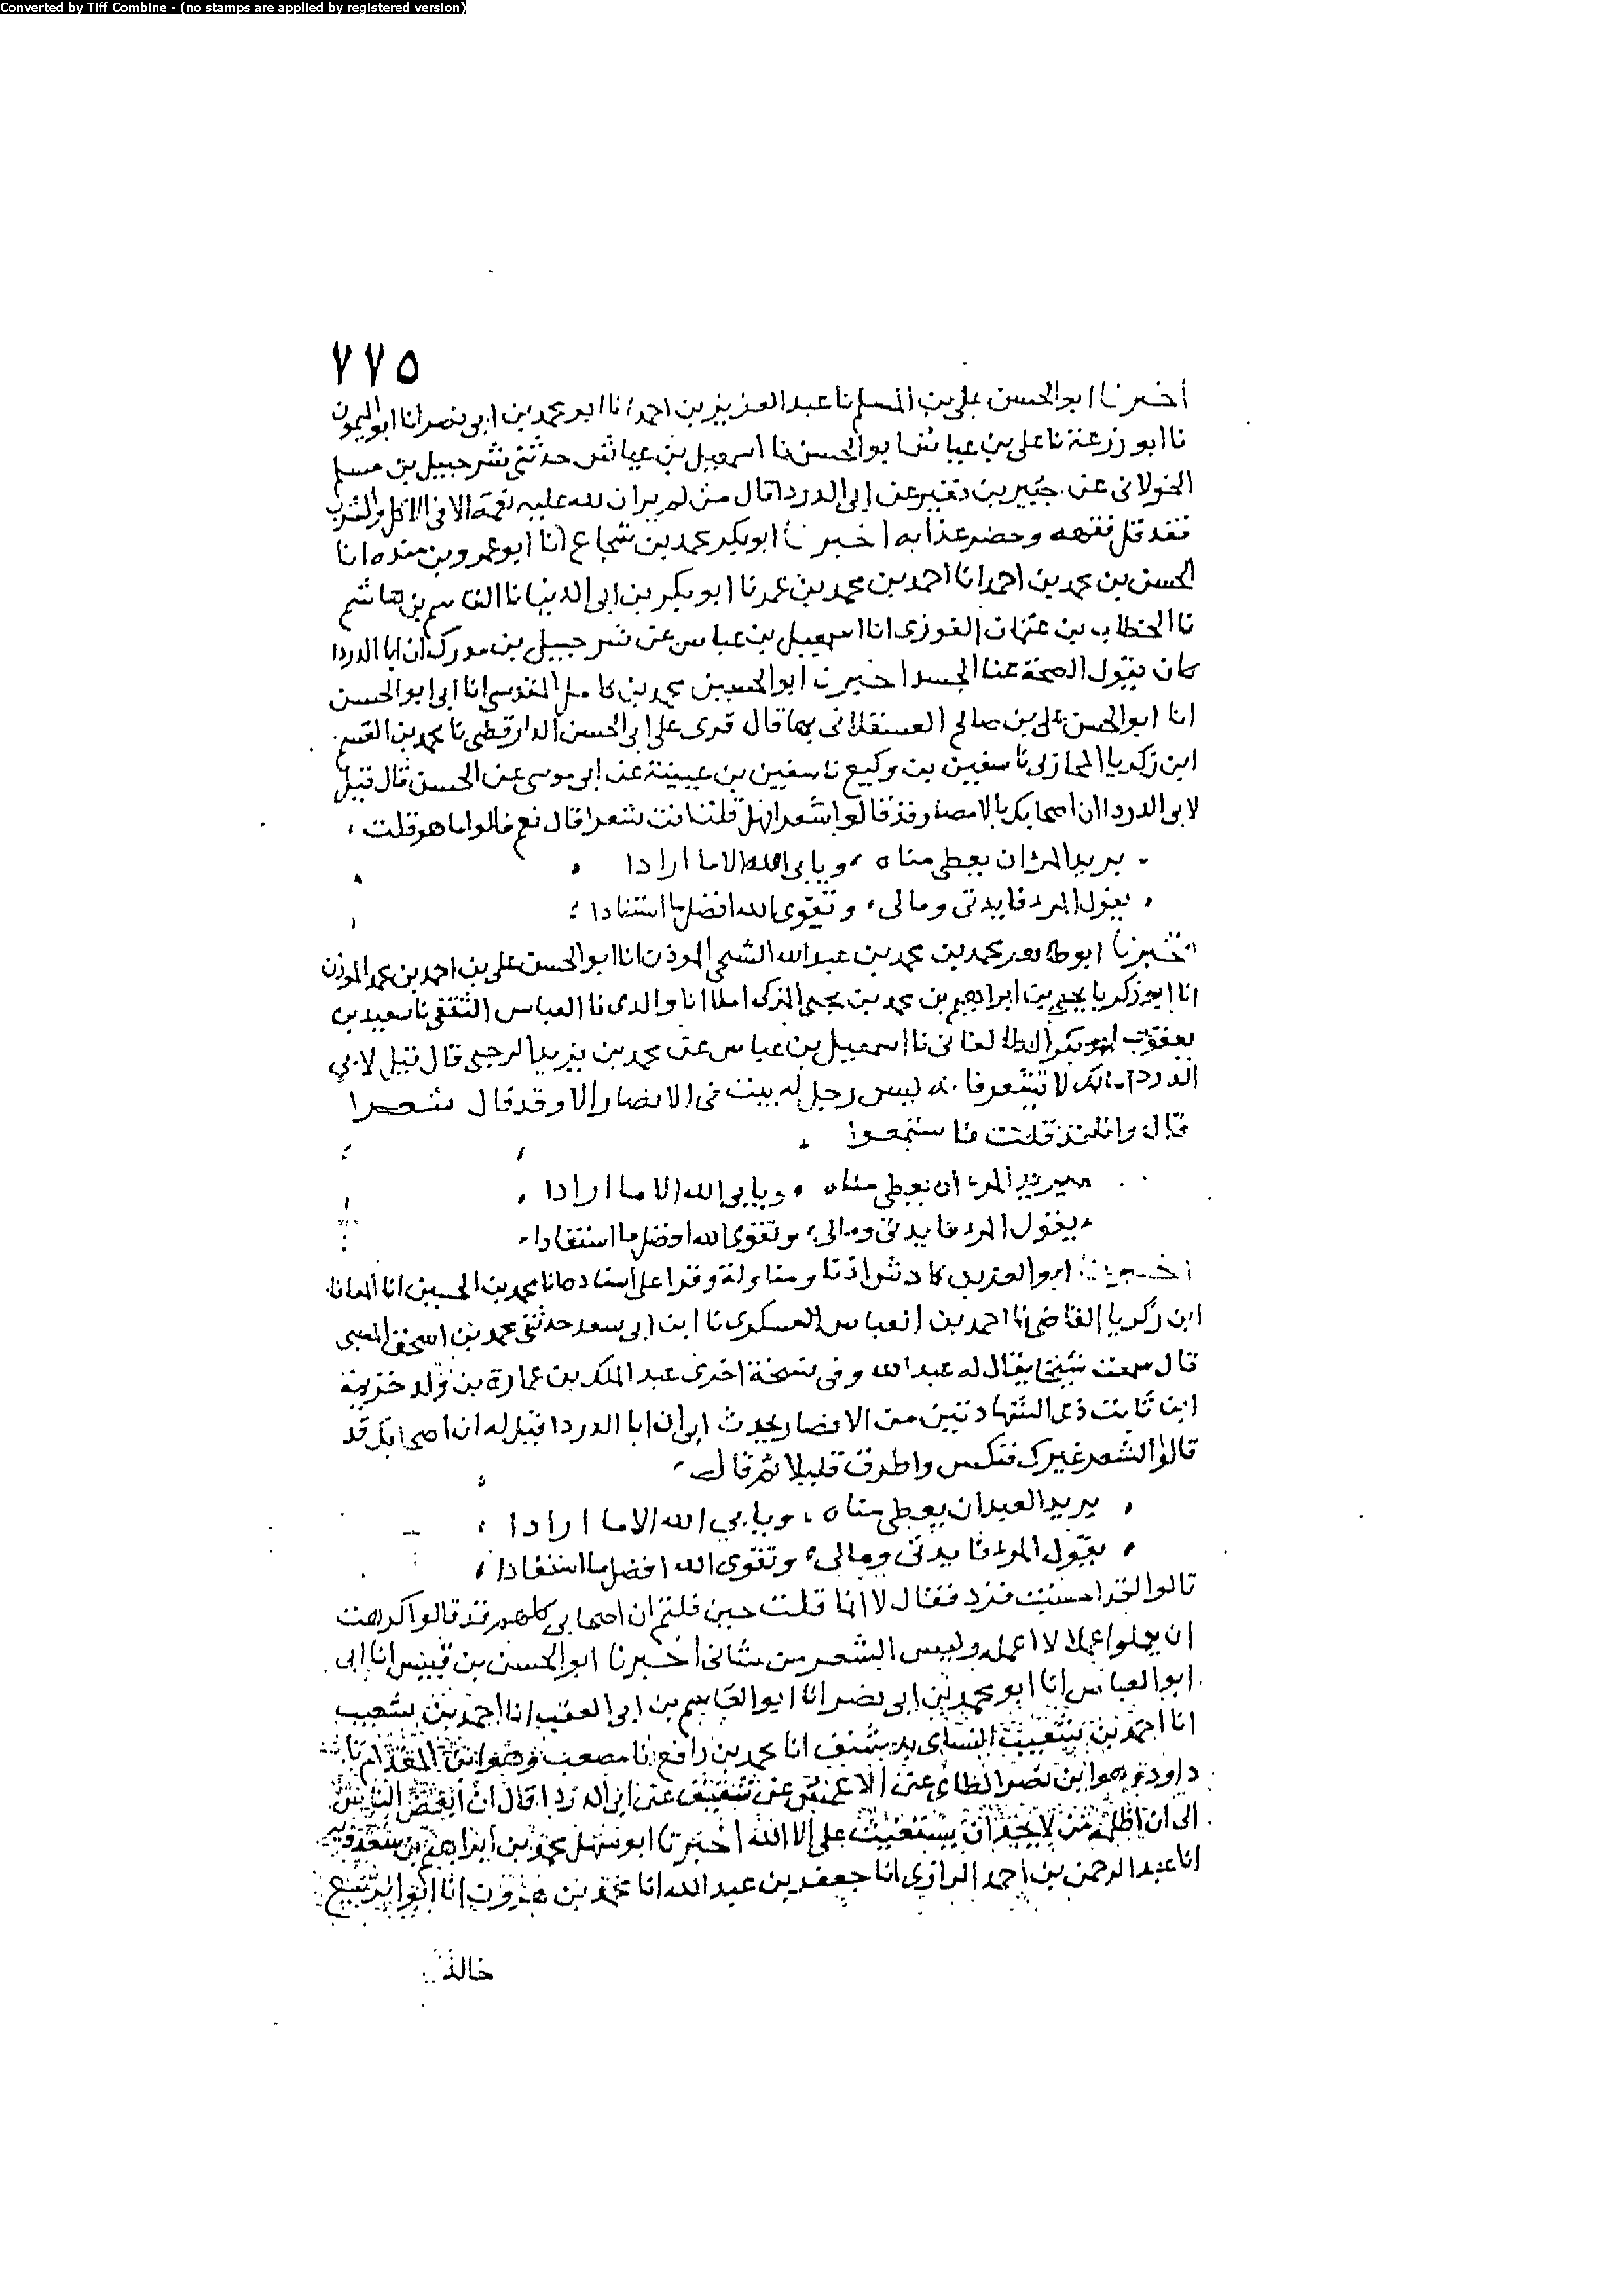 Converted by Tiff Combine - (no stamps are applied by registered version)
٧٧٥
أخبرنا ابو الحسن علي بن المسلم نا عبد العزيز بن احمد انا ابو محمد بن ابي نصر انا ابو الميمون
نا ابو زرعة نا علي بن عياش نا ابو الحسن نا اسمعيل بن عياش حدثني شرحبيل بن مسلم
الخولاني عن جبير بن نفير عن ابي الدرداء قال من لم ير ان لله عليه نعمة الا في الاكل والشرب
فقد قل فقهه وحضر عذابه اخبرنا ابو بكر محمد بن شجاع انا ابو عمرو بن منده انا
الحسن بن محمد بن احمد انا احمد بن محمد بن عمر نا ابو بكر بن ابي الدنيا نا القاسم بن هاشم
نا الخطاب بن عثمان الفوزي انا اسمعيل بن عياس عن شرحبيل بن مدرك ان ابا الدردا
كان يقول الصحة غنا الجسد اخبرنا ابو الحسين محمد بن كامل المقدسي انا ابي ابو الحسن
انا ابو الحسن علي بن صالح العسقلاني بها قال قرى على ابي الحسن الدارقطني نا محمد بن القسم
ابن زكريا المحازلي نا سفين بن وكيع نا سفين بن عيينة عن ابي موسى عن الحسن قال قيل
لابي الدردا ان اصحابك بالامصار قد قالوا شعرا فهل قلت انت شعرا قال نعم قالوا ما هو قلت
يريد المرء ان يعطى مناه ، ويابى الله الا ما ارادا
يقول المرء فايدتي ومالي ، وتقوى الله افضل ما استفادا
اخبرنا ابو طاهر محمد بن محمد بن عبد الله الشحي الموذن انا ابو الحسن علي بن احمد بن محمد الموذن
انا ابو زكريا يحيى بن ابراهيم بن محمد بن يحيى المزكي املا انا والدي نا العباس الثقفي نا سعيد بن
يعقوب ابو بكر الطالقاني نا اسمعيل بن عياس عن محمد بن يزيد الرحبي قال قيل لابي
الدردا مالك لا تشعر فانه ليس رجل له بيت في الانصار الا وقد قال شعرا
قال وانا قد قلت فاستمعوا
يريد المرء ان يعطى مناه ، ويابى الله الا ما ارادا
يقول المرء فايدتي ومالي ، وتقوى الله افضل ما استفادا
اخبرنا ابو العز بن كادش اذنا ومناولة وقرا علي اسناده انا محمد بن الحسين انا المعافا
ابن زكريا القاضي نا احمد بن العباس العسكري نا ابن ابي سعد حدثني محمد بن اسحق المسيبي
قال سمعت شيخا يقال له عبد الله وفي نسخة اخرى عبد الملك بن عمارة بن ولد خزيمة
ابن ثابت ذي الشهادتين من الانصار يحدث ابي ان ابا الدردا قيل له ان اصحابك قد
قالوا الشعر غيرك فنكس واطرق قليلا ثم قال
يريد العبد ان يعطى مناه ، ويابي الله الا ما ارادا
يقول المرء فايدتي ومالي ، وتقوى الله افضل ما استفادا
قالوا لقد احسنت فزد فقال لا انما قلت حين قلتم ان اصحابي كلهم قد قالوا كرهت
ان يعملوا عملا لا اعمله وليس الشعر من شاني اخبرنا ابو الحسن بن قبيس انا ابي
ابو العباس انا ابو محمد بن ابي نصر انا ابو القاسم بن ابي العقب انا احمد بن شعيب
انا احمد بن شعيب النساي بدمشق انا محمد بن رافع نا مصعب وهو ابن المقدام نا
داود وهو ابن نصر الطائي عن الاعمش عن شقيق عن ابي الدردا قال ان ابغض الناس
الى ان اظلمه من لا يجد ان يستغيث علي الا الله اخبرنا ابو سهل محمد بن ابراهيم بن سعدويه
انا عبد الرحمن بن احمد الرازي انا جعفر بن عبد الله انا محمد بن هرون انا ابو الربيع
خالد